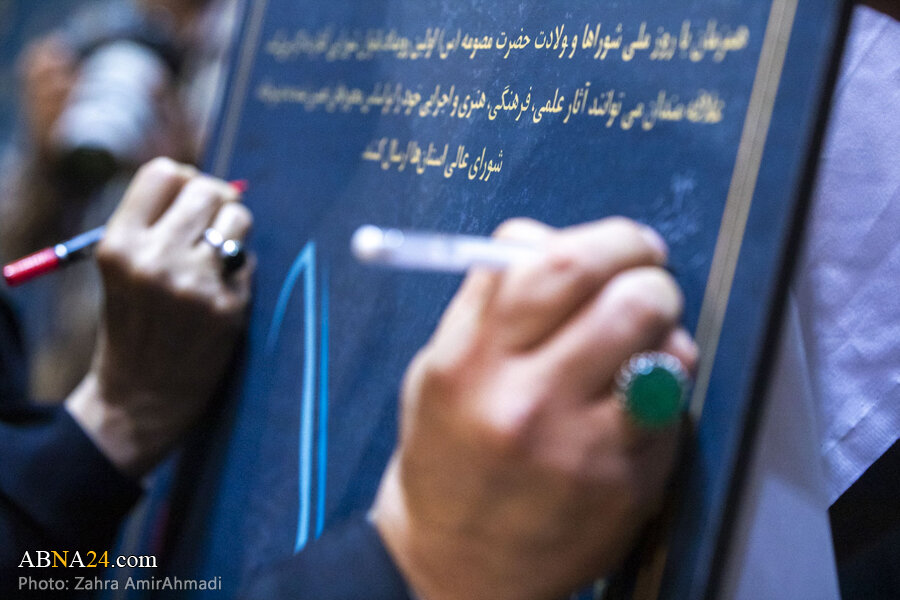 همزمان با روز ملی شوراها و ولادت حضرت معصومه (س) اولین رویداد
علاقه مندان می توانند آثار علمی، فرهنگی، هنری و اجرایی خود را
شورای عالی استان‌ها ارسال کنند
ABNA24.com
Photo: Zahra AmirAhmadi